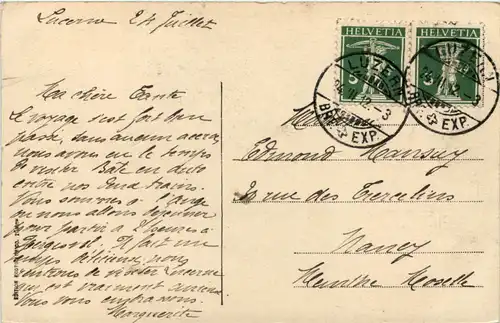 Lucerne 24 Juillet
Ma chère Tante
Le voyage s'est fort bien
passé, sans aucun accroc,
nous avons eu le temps
de visiter Bâle en auto
entre nos deux trains.
Nous sommes à
où nous allons déjeuner
pour partir à 2 heures à
Il fait une
temps délicieux, nous
venons de visiter Lucerne
qui est vraiment
Nous vous embrassons.
Marguerite
HELVETIA
HELVETIA
5
LUZERN
BRF. EXP.
LUZERN
BRF. EXP.
Edmond Mansuy
rue des Tiercelins
Nancy
Meurthe Moselle